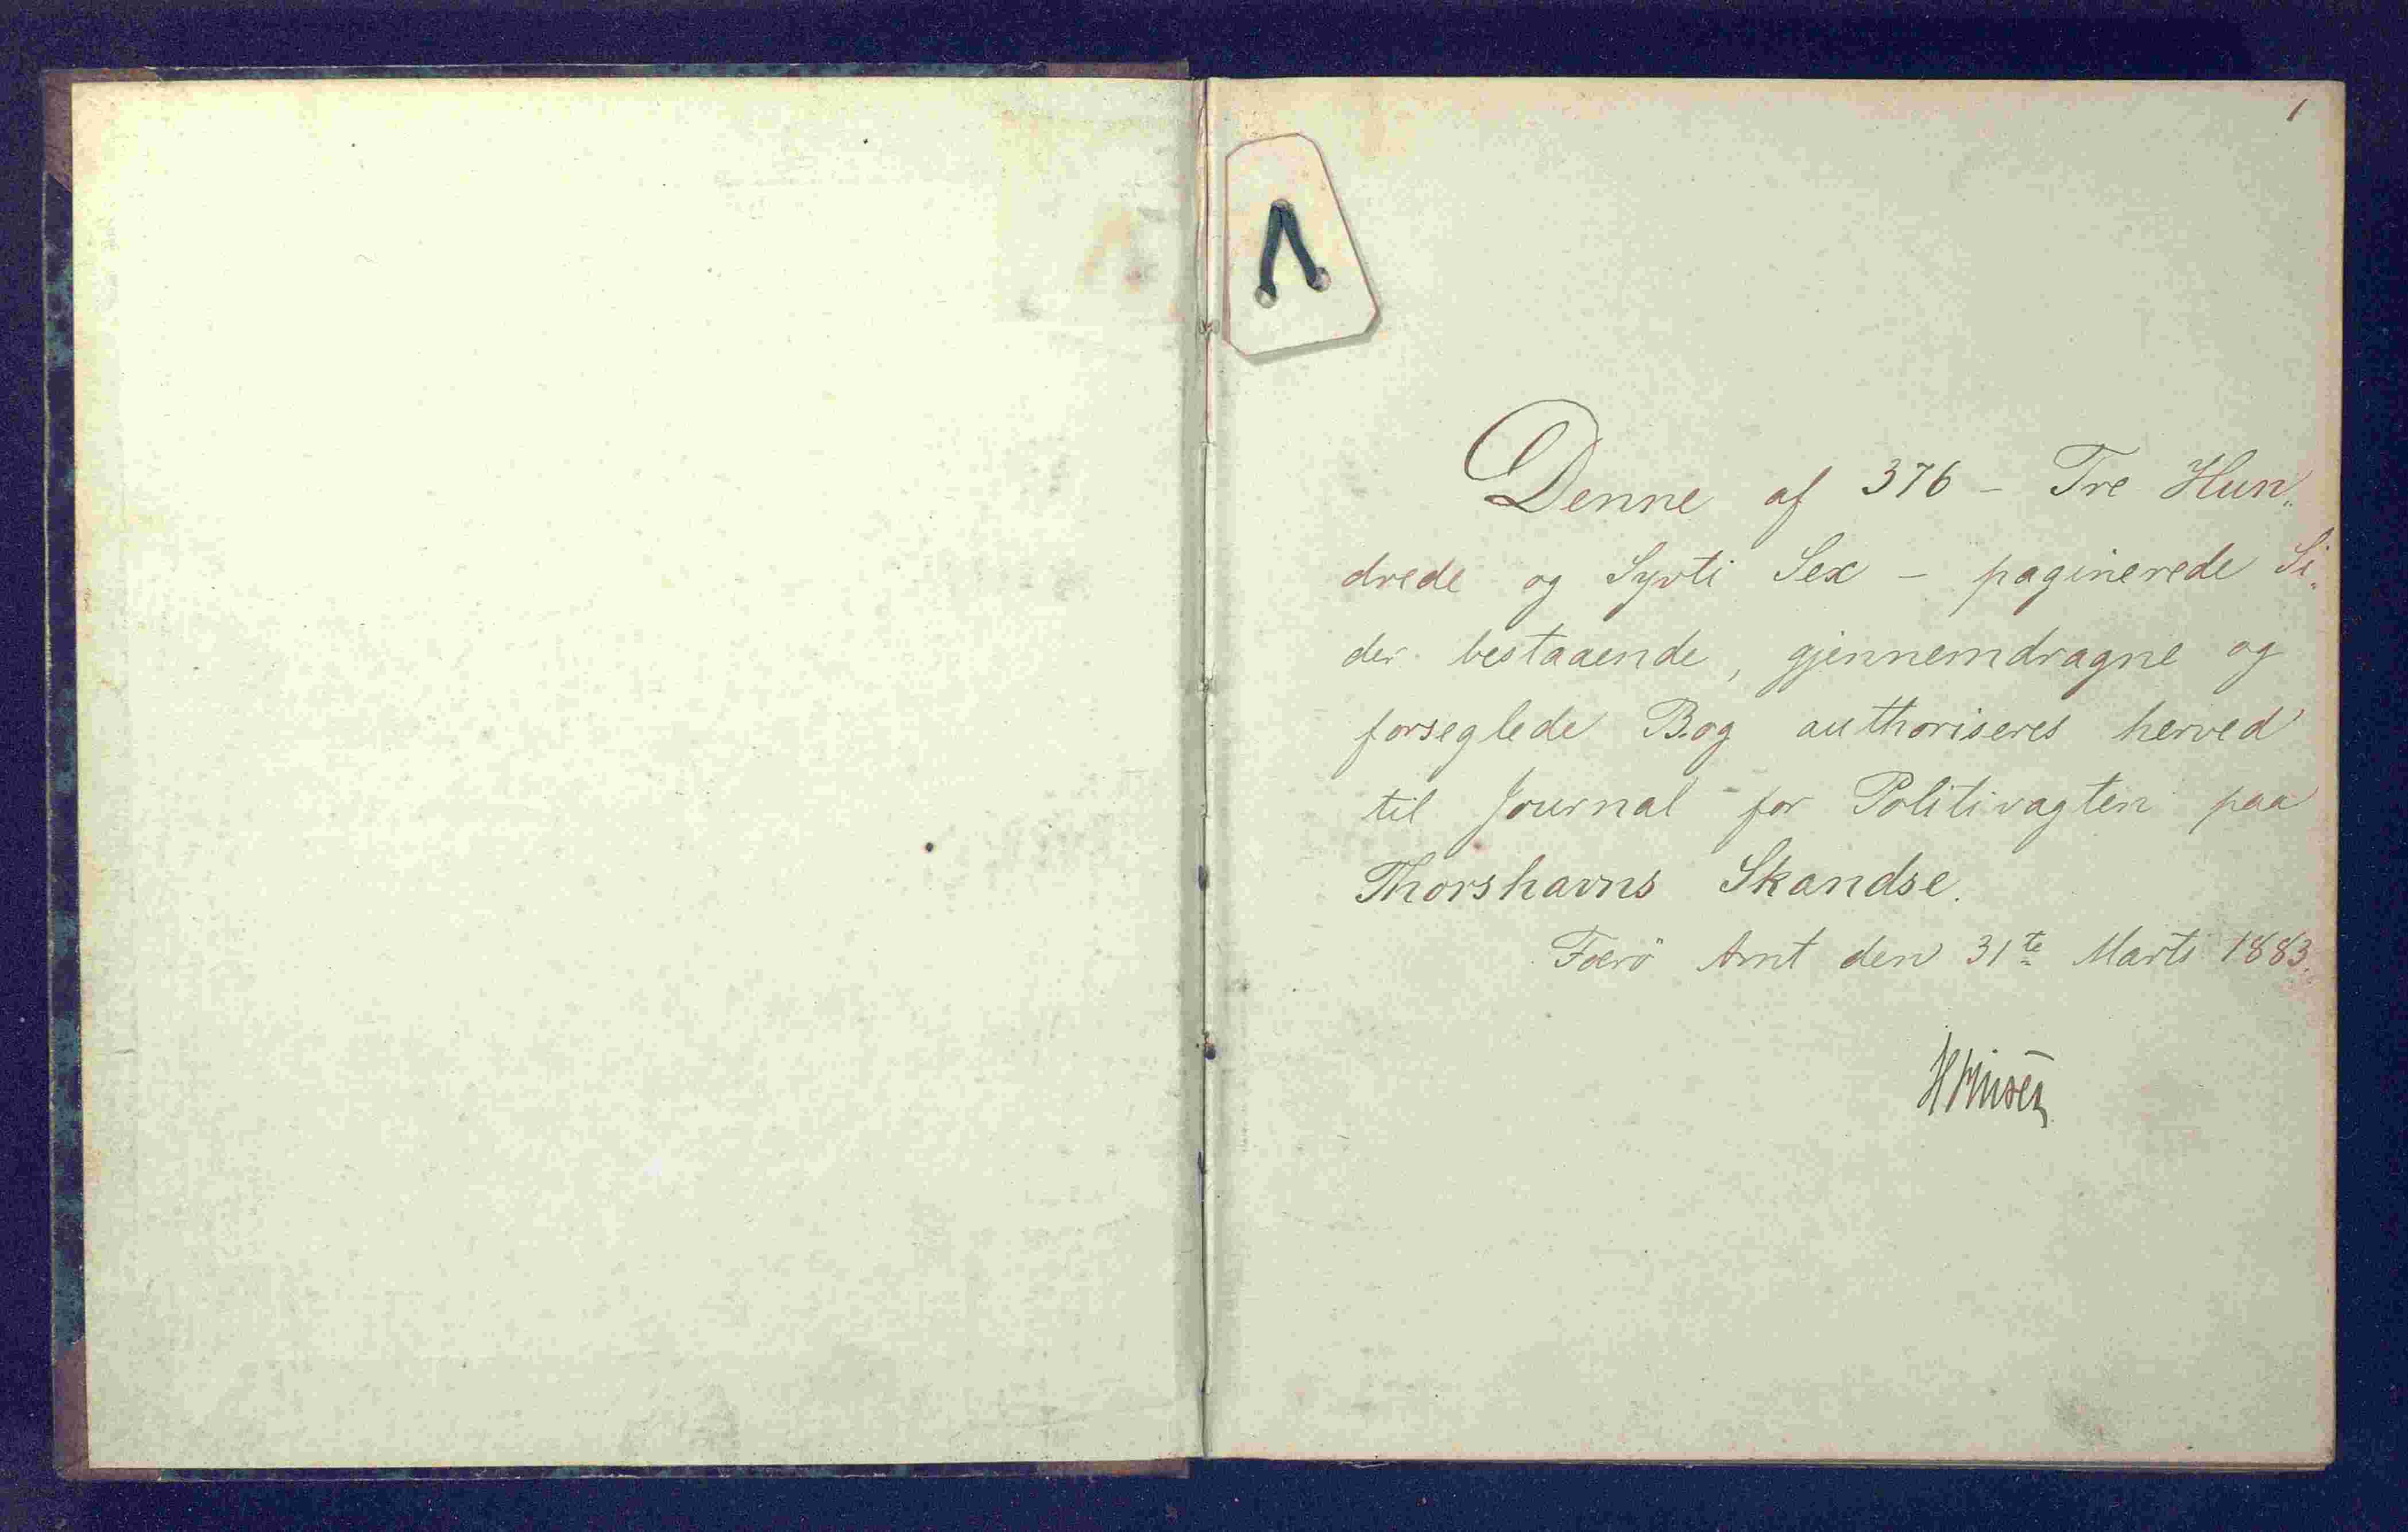 1
Denne af 376 - Tre Hun„
drede og Syvti Sex - paginerede Si„
der bestaaende, gjennemdragne og
forseglede Bog authoriseres herved
til Journal for Politivagten paa
Thorshavns Skandse.
Færö Amt den 31te Marts 1883.
HFinsen